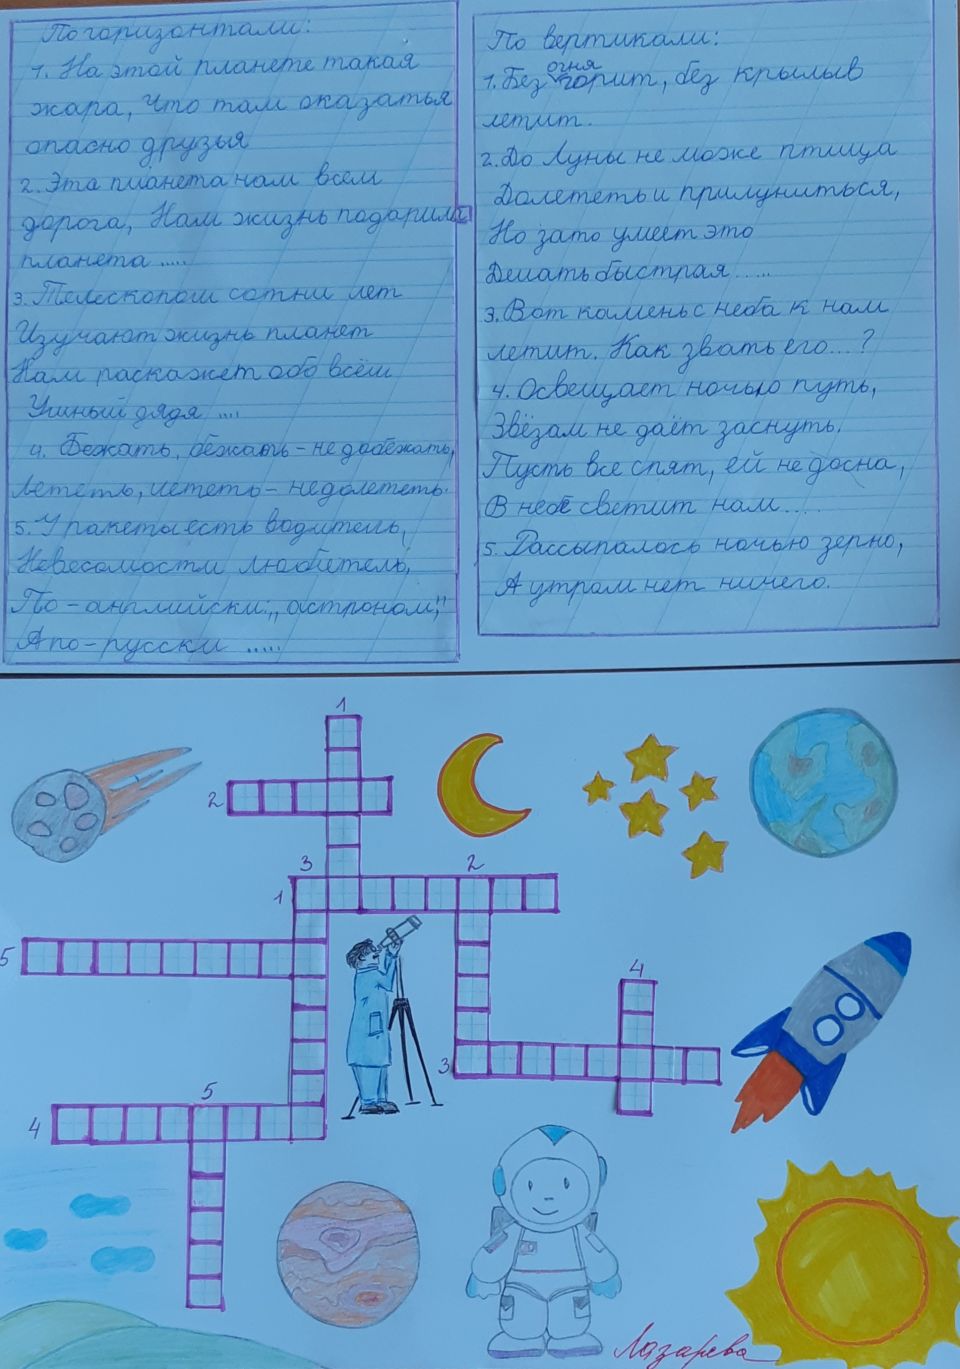 По горизонтали:
1. На этой планете такая
жара, Что там оказатья
опасно друзья
2. Эта планета нам всем
дорога, Нам жизнь подарила
планета .....
3. Телескопом сотни лет
Изучают жизнь планет
Нам раскажет обо всём
Умный дядя ....
4. Бежать, бежать - не добежать,
Лететь, лететь - недолететь.
5. У ракеты есть водитель,
Невесомости любитель,
По - английски: ,,астроном,"
А по - русски .....
По вертикали:
огня
1. Без горит, без крылыв
летит.
2. До Луны не може птица
Долететь и прилуниться,
Но зато умеет это
Делать быстрая .....
3. Вот камень с неба к нам
летит. Как звать его...?
4. Освещает ночью путь,
Звёзам не даёт заснуть.
Пусть все спят, ей не досна,
В небе светит нам....
5. Рассыпалось ночью зерно,
А утром нет ничего.
1
2
3 2
1
5
4
3
5
4
Лазарева